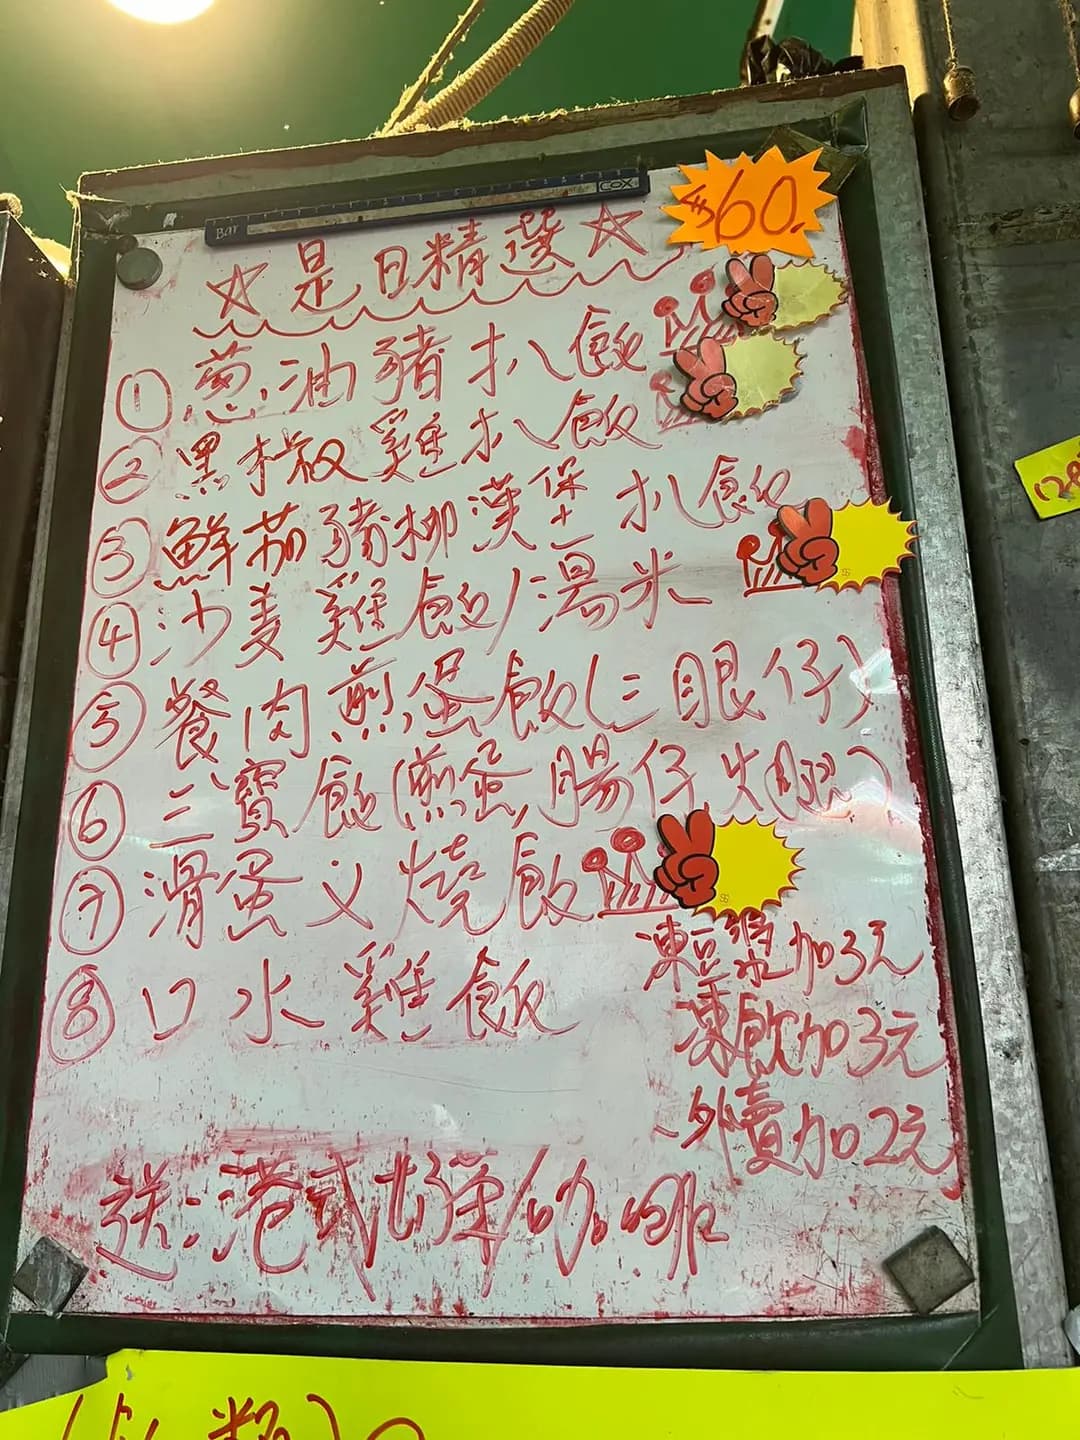 BAR COX
$60.
☆是日精選☆
① 葱油豬扒飯
② 黑椒雞扒飯
③ 鮮茄豬柳漢堡扒飯
④ 沙姜雞飯/湯米
⑤ 餐肉煎蛋飯(三眼仔)
⑥ 三寶飯(煎蛋,腸仔,火腿)
⑦ 滑蛋乂燒飯
⑧ 口水雞飯
凍豆漿加3元
凍飲加3元
外賣加2元
送:港式奶茶/咖啡